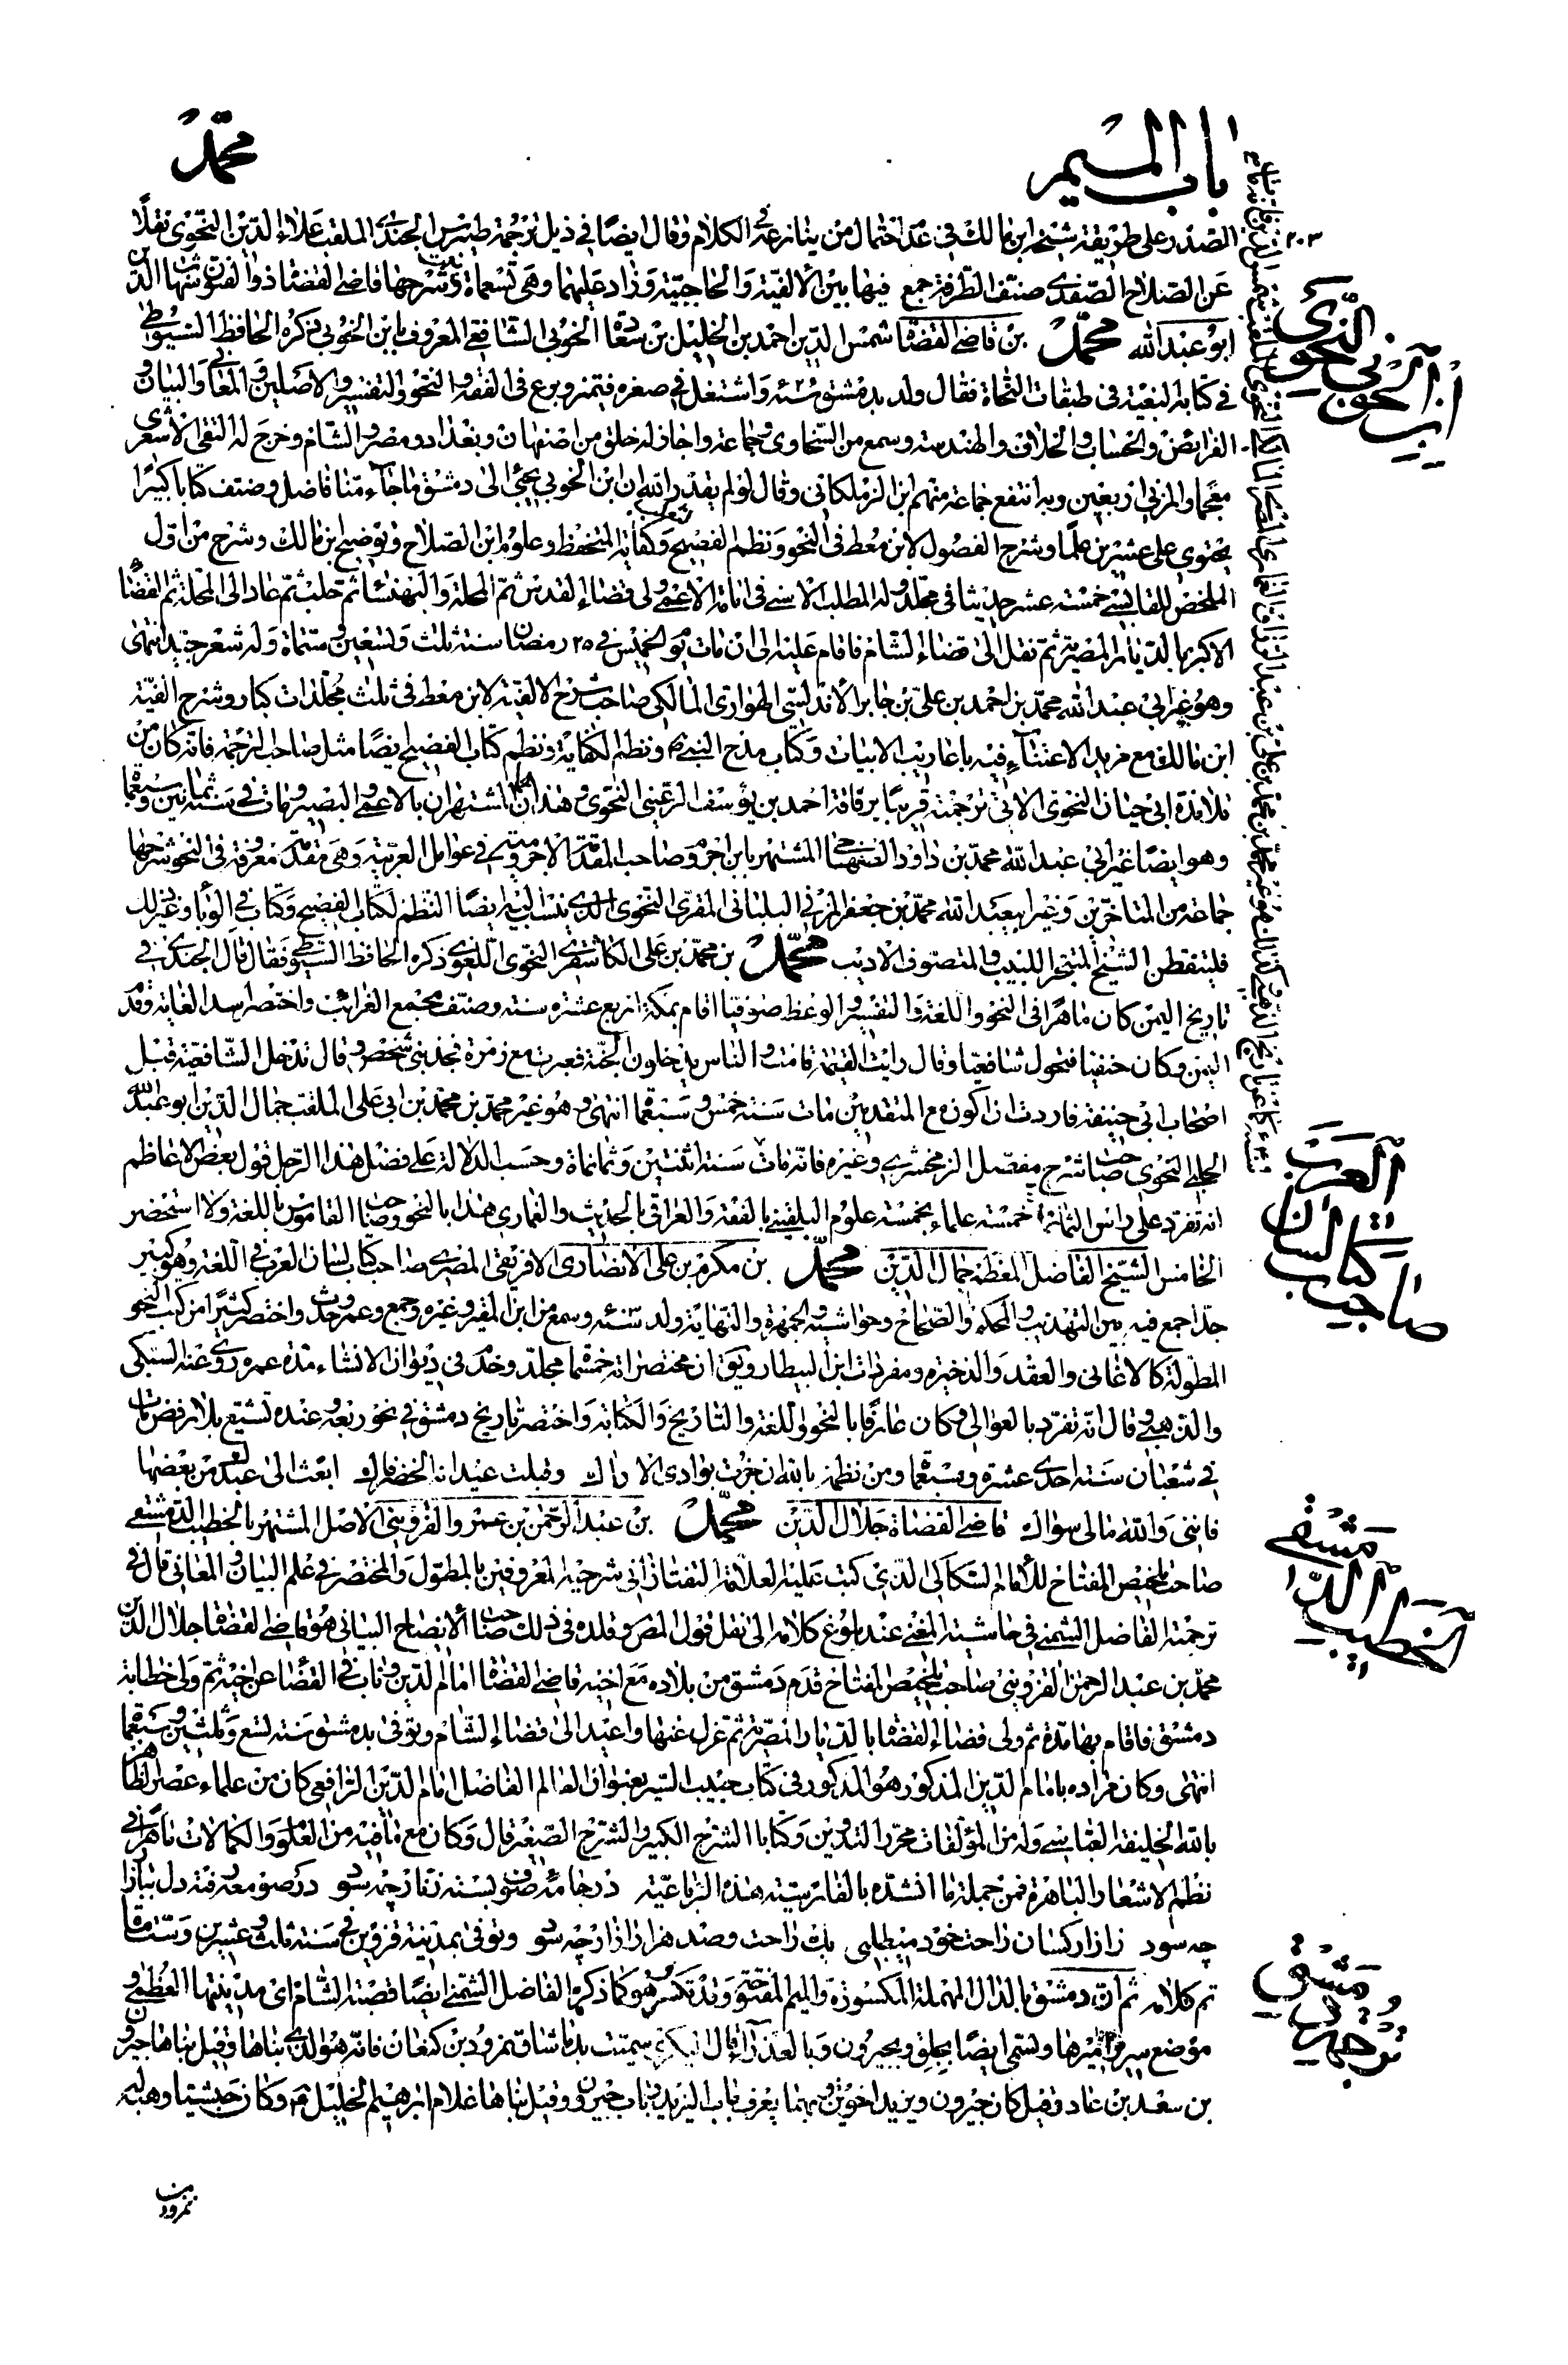 باب الميم
محمد
٢٠٣
الصدر على طريقة شيخه ابن مالك في عد احتمال من ينازعه في الكلام وقال ايضا في ذيل ترجمة طيبرس الجندي الملقب علاء الدين النحوي نقلا
عن الصلاح الصفدي صنف الطرفة جمع فيها بين الالفية والحاجبية وزاد عليهما وهي تسعمائة بيت وشرحها قاضي القضاة ذو الفنون شهاب الدين
ابو عبد الله محمد بن قاضي القضاة شمس الدين احمد بن الخليل بن سعادة الخوبي الشافعي المعروف بابن الخوبي ذكره الحافظ السيوطي
في كتابه البغية في طبقات النحاة فقال ولد بدمشق سنة واشتغل في صغره فتميز وبرع في الفقه والنحو والتفسير والاصلين والمعاني والبيان و
الفرايض والحساب والخلاف والهندسة وسمع من السخاوي وجماعة واجاز له خلق من اصفهان وبغداد ومصر والشام وخرج له التقي الاشعري
معجما والمزني اربعين وبه انتفع جماعة منهم ابن الزملكاني وقال لو لم يقدر الله ان ابن الخوبي يجيء الى دمشق ما جاء منا فاضل وصنف كتابا كبيرا
يحتوي على عشرين علما وشرح الفصول لابن معط في النحو ونظم الفصيح وكفاية المتحفظ وعلوم ابن الصلاح وتوضيح ابن مالك وشرح من اول
الملخص للقابسي خمسة عشر حديثا في مجلد وله المطلب الاسنى في امامة الاعمى ولي قضاء القدس ثم المحلة والبهنسا ثم حلب ثم عاد الى المحلة ثم القضاء
الاكبر بالديار المصرية ثم نقل الى قضاء الشام فاقام عليه الى ان مات يوم الخميس في ٢٥ رمضان سنة ثلث وتسعين وستمائة وله شعر جيد انتهى
وهو غير ابي عبد الله محمد بن احمد بن علي بن جابر الاندلسي الهواري المالكي صاحب شرح الالفية لابن معط في ثلث مجلدات كبار وشرح الفية
ابن مالك مع مزيد الاعتناء فيه باعاريب الابيات وكتاب مدح النبي ونظم الكفاية ونظم كتاب الفصيح ايضا مثل صاحب الترجمة فانه كان من
تلامذة ابي حيان النحوي الاتي ترجمته قريبا برفاقة احمد بن يوسف الرعيني النحوي وهذان المشتهران بالاعمى والبصير ومات في سنة ثمانين وسبعمائة
وهو ايضا غير ابي عبد الله محمد بن داود الصنهاجي المشتهر بابن اجروم صاحب المقدمة الاجرومية في عوامل العربية وهي مقدمة معروفة في النحو شرحها
جماعة من المتاخرين وغير ابي عبد الله محمد بن جعفر المزني البلنياني المقري النحوي الذي ينسب اليه ايضا النظم لكتاب الفصيح وكتاب في الوبا وغير ذلك
فليتفطن الشيخ المتبحر اللبيب والمتصوف الاديب محمد بن محمد بن علي الكاشغري النحوي اللغوي ذكره الحافظ السيوطي فقال قال الجندي في
تاريخ اليمن كان ماهرا في النحو واللغة والتفسير والوعظ صوفيا اقام بمكة اربع عشرة سنة وصنف مجمع الغرائب واختصر اسد الغابة وقدم
اليمن وكان حنفيا فتحول شافعيا وقال رايت القيمة قامت والناس يدخلون الجنة فعبرت مع زمرة فجذبني شخص وقال تدخل الشافعية قبل
اصحاب ابي حنيفة فاردت ان اكون مع المتقدمين مات سنة خمس وسبعمائة انتهى وهو غير محمد بن محمد بن ابي علي الملقب جمال الدين ابو عبد الله
الحلبي النحوي صاحب شرح مفصل الزمخشري وغيره فانه مات سنة اثنتين وثمانمائة وحسب الدلالة على فضل هذا الرجل قول بعض الاعاظم
انه تفرد على راس الثمانمائة خمسة علماء بخمسة علوم البلقيني بالفقه والعراقي بالحديث والغماري هذا بالنحو وصاحب القاموس باللغة ولا استحضر
الخامس الشيخ الفاضل المعظم جمال الدين محمد بن مكرم بن علي الانصاري الافريقي المصري صاحب كتاب لسان العرب في اللغة وهو كبير
جدا جمع فيه بين التهذيب والمحكم والصحاح وحواشيه والجمهرة والنهاية ولد سنة وسمع من ابن المقير وغيره وجمع وعمر وحدث واختصر كثيرا من كتب النحو
المطولة كالاغاني والعقد والذخيرة ومفردات ابن البيطار ويق ان مختصراته خمسمائة مجلد وخدم في ديوان الانشاء مدة عمره روى عنه السبكي
والذهبي وقال انه تفرد بالعوالي وكان عارفا بالنحو واللغة والتاريخ والكتابة واختصر تاريخ دمشق في نحو ربعه وعنده تشيع بلا رفض مات
في شعبان سنة احدى عشرة وسبعمائة ومن نظمه بالله ان جزت بوادي الاراك وقبلت عيدانه الخضر فاك ابعث الى عبدك من بعضها
فانني والله مالي سواك قاضي القضاة جلال الدين محمد بن عبد الرحمن بن عمر القزويني الاصل المشتهر بالخطيب الدمشقي
صاحب تلخيص المفتاح للامام السكاكي الذي كتب عليه العلامة التفتازاني شرحيه المعروفين بالمطول والمختصر في علم البيان والمعاني قال في
ترجمته الفاضل الشمني في حاشية المغني عند بلوغ كلامه الى نقل قول المص وقلده في ذلك صاحب الايضاح البياني هو قاضي القضاة جلال الدين
محمد بن عبد الرحمن القزويني صاحب تلخيص المفتاح قدم دمشق من بلاده مع اخيه قاضي القضاة امام الدين وناب في القضا عن اخيه ثم ولي خطابة
دمشق فاقام بها مدة ثم ولي قضاء القضاة بالديار المصرية ثم عزل عنها واعيد الى قضاء الشام وتوفي بدمشق سنة تسع وثلثين وسبعمائة
انتهى وكان مراده بامام الدين المذكور هو المذكور في كتاب حبيب السير بعنوان العالم الفاضل امام الدين الرافعي كان من علماء عصر الظاهر
بالله الخليفة العباسي وله من المؤلفات محرر التدوين وكتابا الشرح الكبير والشرح الصغير قال وكان مع ما فيه من العلو والكمالات ماهرا في
نظم الاشعار الباهرة فمن جملة ما انشده بالفارسية هذه الرباعية در جامه صوف بسته زنار چه سود در صومعه رفته دل ببازار
چه سود ز ازار كسان راحت خود ميطلبي يك راحت وصد هزار ازار چه سود وتوفي بمدينة قزوين في سنة ثلث وعشرين وستمائة
تم كلامه ثم ان دمشق بالدال المهملة المكسورة والميم المفتوحة وقد تكسر هو كما ذكره الفاضل الشمني ايضا قصبة الشام اي مدينتها العظمى و
موضع سرير اميرها وتسمى ايضا بجلق وبجيرون وبالعذراء قال البكري سميت بدماشاق نمرود بن كنعان فانه هو الذي بناها وقيل بناها جيرون
بن سعد بن عاد وقيل كان جيرون ويزيد اخوين وبهما يعرف باب اليزيد وباب جيرون وقيل بناها غلام ابرهيم الخليل وكان حبشيا وهبه
نمرود بن
ابن الخوبي النحوي
صاحب كتاب لسان العرب
الخطيب الدمشقي
توجيه دمشق